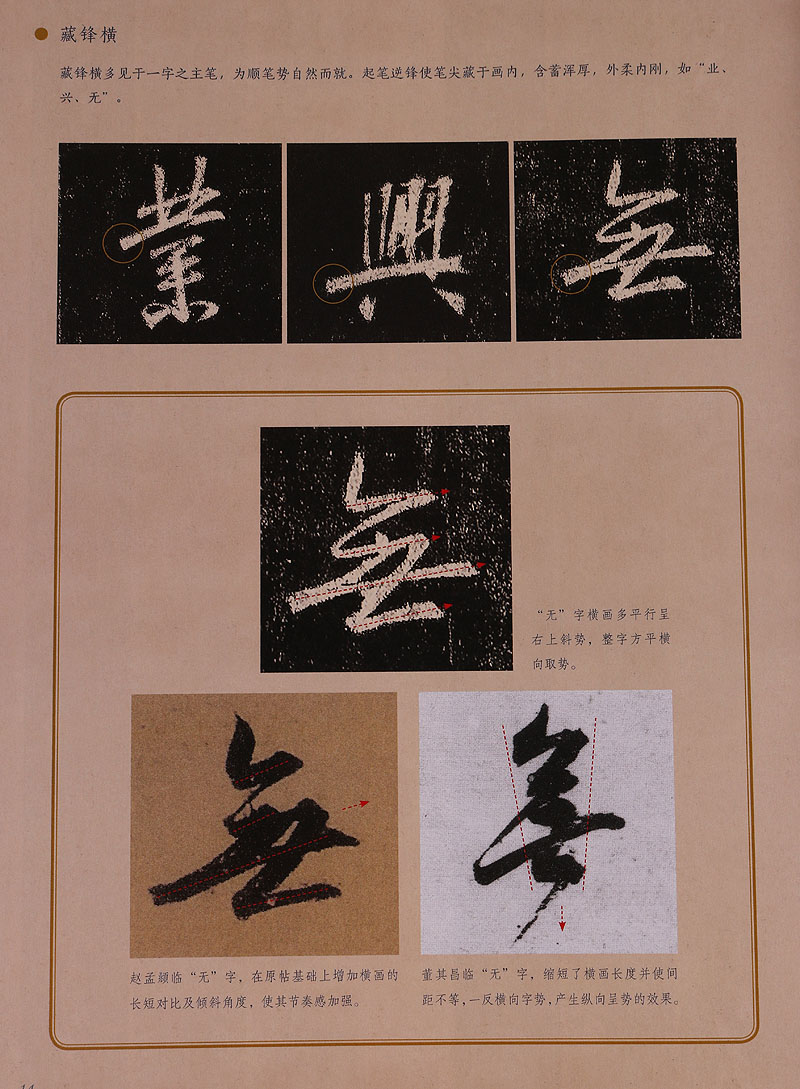 藏锋横
藏锋横多见于一字之主笔，为顺笔势自然而就。起笔逆锋使笔尖藏于画内，含蓄浑厚，外柔内刚，如“业、
兴、无”。
業
興
無
無
“无”字横画多平行呈
右上斜势，整字方平横
向取势。
無
無
赵孟頫临“无”字，在原帖基础上增加横画的
长短对比及倾斜角度，使其节奏感加强。
董其昌临“无”字，缩短了横画长度并使间
距不等，一反横向字势，产生纵向呈势的效果。